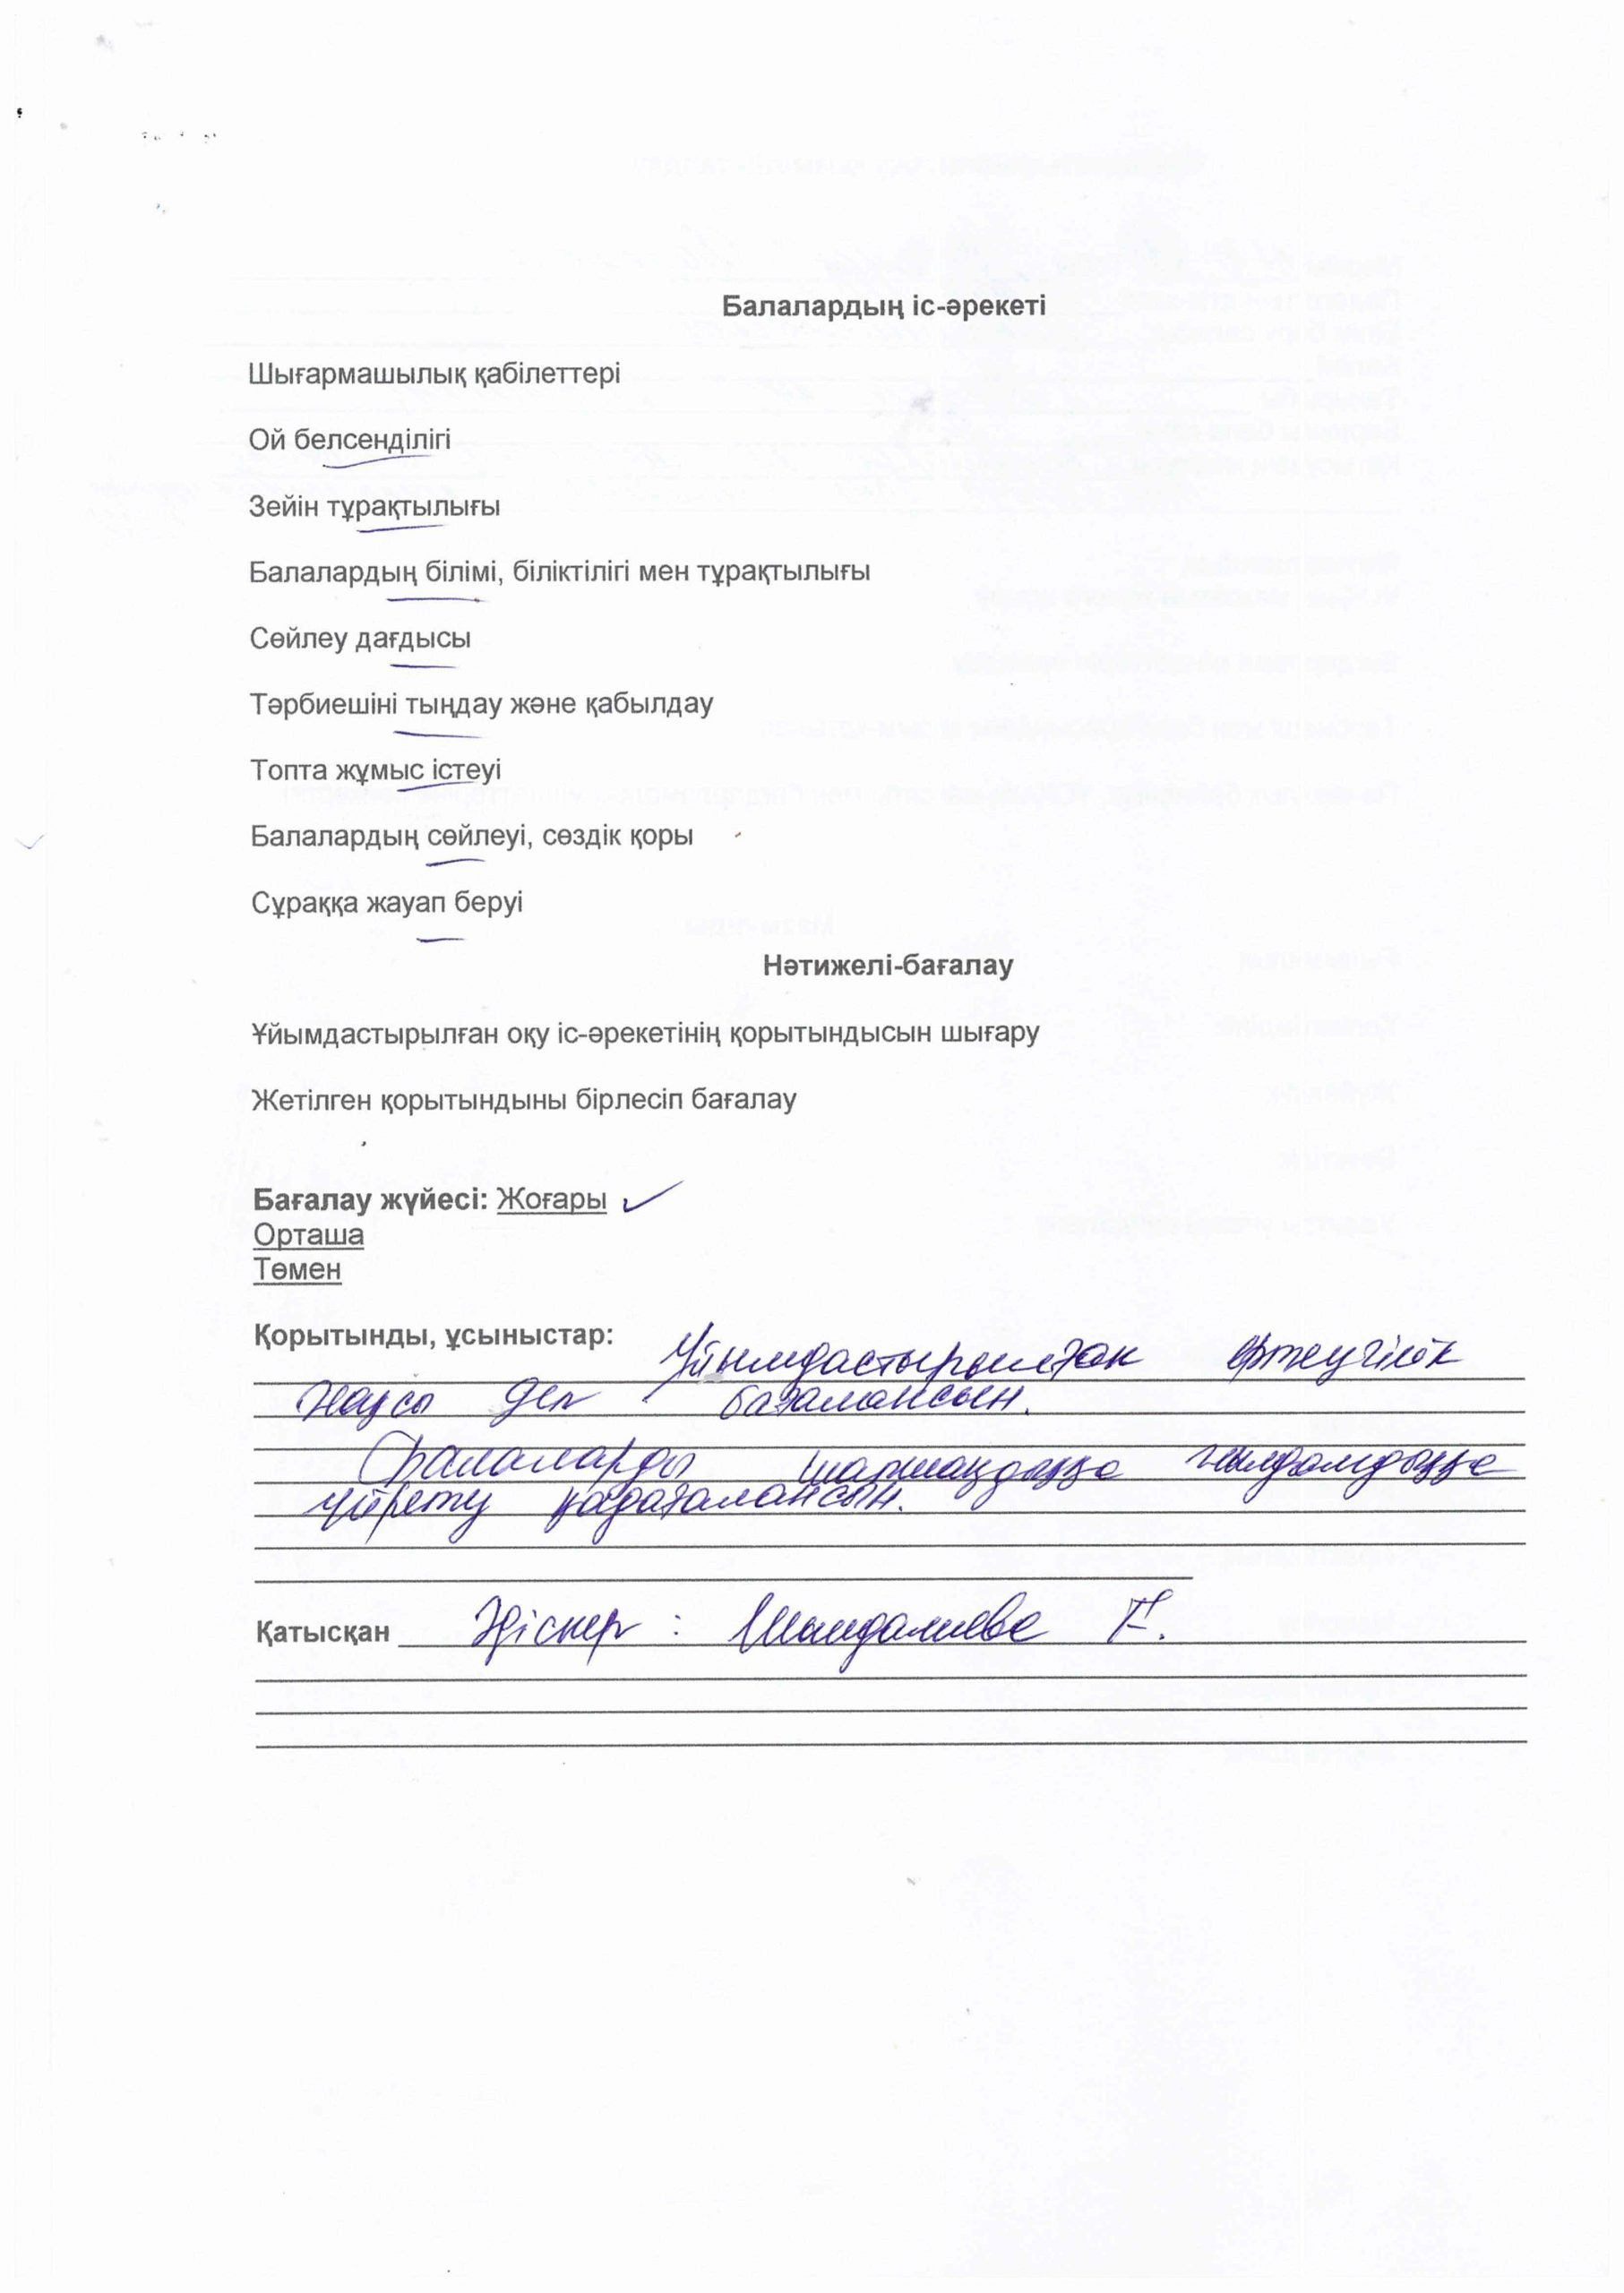 Балалардың іс-әрекеті
Шығармашылық қабілеттері
Ой белсенділігі
Зейін тұрақтылығы
Балалардың білімі, біліктілігі мен тұрақтылығы
Сөйлеу дағдысы
Тәрбиешіні тыңдау және қабылдау
Топта жұмыс істеуі
Балалардың сөйлеуі, сөздік қоры
Сұраққа жауап беруі
Нәтижелі-бағалау
Ұйымдастырылған оқу іс-әрекетінің қорытындысын шығару
Жетілген қорытындыны бірлесіп бағалау
Бағалау жүйесі: Жоғары ✓
Орташа
Төмен
Қорытынды, ұсыныстар: Ұйымдастырылған ертеңгілік
жақсы деп бағалансын.
Балаларды шапшаңдыққа жылдамдыққа
үйрету қадағалансын.
Қатысқан Әдіскер: Шындалиева Г.